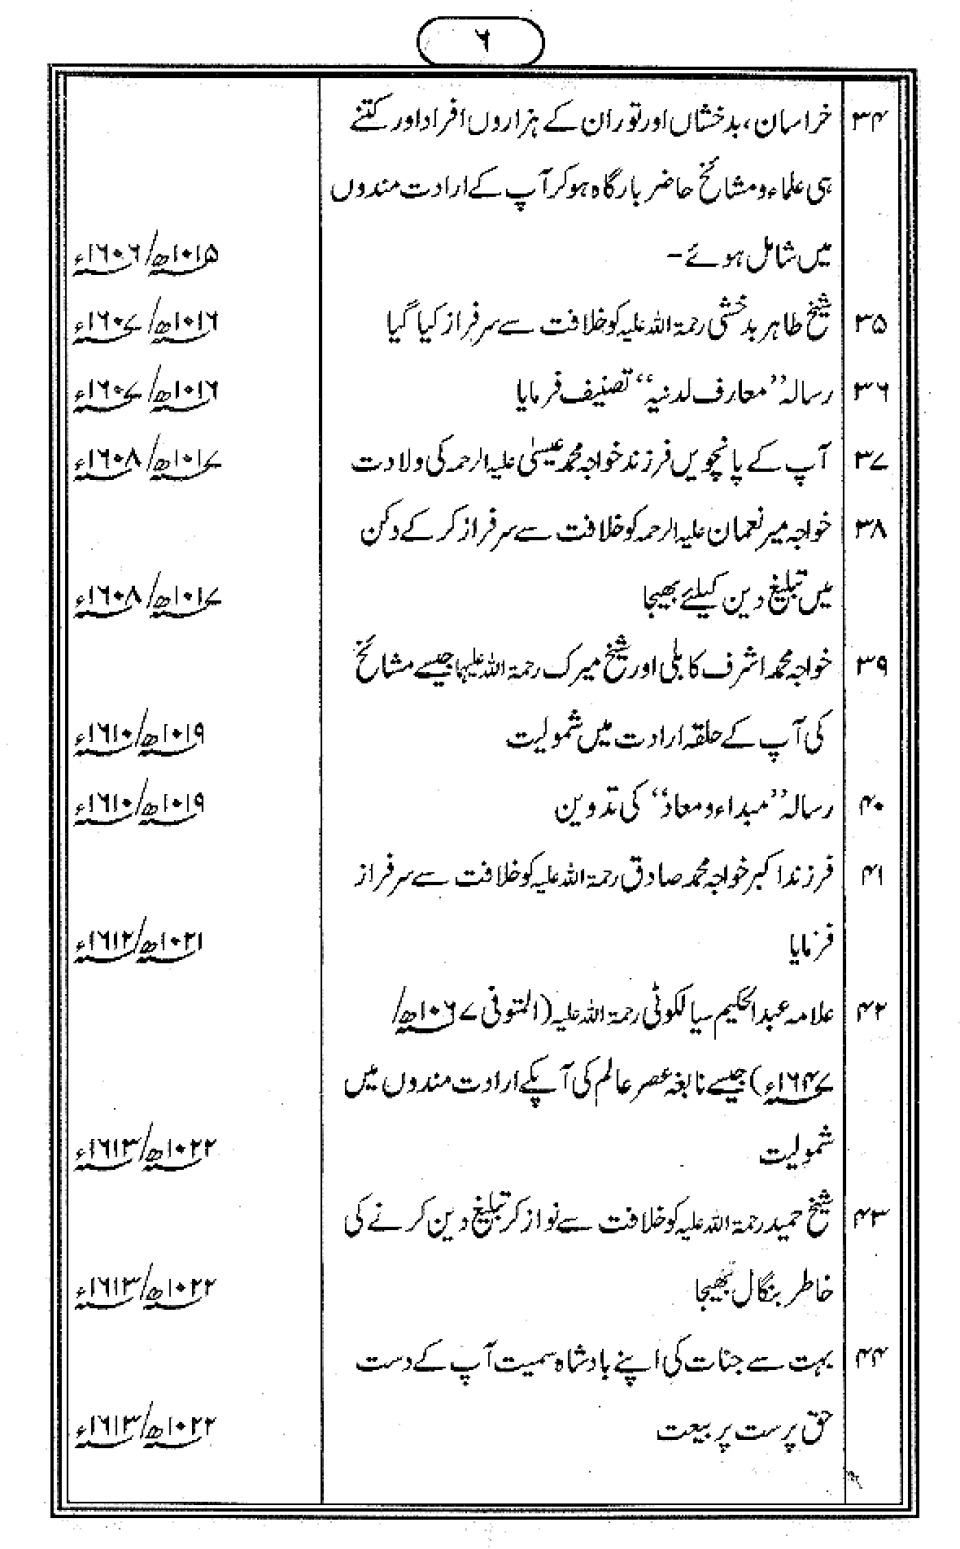 ۶
۳۴ خراسان، بدخشاں اور توران کے ہزاروں افراد اور کتنے
ہی علماء و مشائخ حاضر بارگاہ ہو کر آپ کے ارادت مندوں
میں شامل ہوئے۔ ۱۰۱۵ھ/۱۶۰۶ء
۳۵ شیخ طاہر بدخشی رحمۃ اللہ علیہ کو خلافت سے سرفراز کیا گیا ۱۰۱۶ھ/۱۶۰۷ء
۳۶ رسالہ ’’معارف لدنیہ‘‘ تصنیف فرمایا ۱۰۱۶ھ/۱۶۰۷ء
۳۷ آپ کے پانچویں فرزند خواجہ محمد عیسیٰ علیہ الرحمہ کی ولادت ۱۰۱۷ھ/۱۶۰۸ء
۳۸ خواجہ میر نعمان علیہ الرحمہ کو خلافت سے سرفراز کر کے دکن
میں تبلیغ دین کیلئے بھیجا ۱۰۱۷ھ/۱۶۰۸ء
۳۹ خواجہ محمد اشرف کابلی اور شیخ میرک رحمۃ اللہ علیہما جیسے مشائخ
کی آپ کے حلقہ ارادت میں شمولیت ۱۰۱۹ھ/۱۶۱۰ء
۴۰ رسالہ ’’مبداء و معاد‘‘ کی تدوین ۱۰۱۹ھ/۱۶۱۰ء
۴۱ فرزند اکبر خواجہ محمد صادق رحمۃ اللہ علیہ کو خلافت سے سرفراز
فرمایا ۱۰۲۱ھ/۱۶۱۲ء
۴۲ علامہ عبدالحکیم سیالکوٹی رحمۃ اللہ علیہ (المتوفی ۱۰۶۷ھ/
۱۶۴۷ء) جیسے نابغہ عصر عالم کی آپکے ارادت مندوں میں
شمولیت ۱۰۲۲ھ/۱۶۱۳ء
۴۳ شیخ حمید رحمۃ اللہ علیہ کو خلافت سے نواز کر تبلیغ دین کرنے کی
خاطر بنگال بھیجا ۱۰۲۲ھ/۱۶۱۳ء
۴۴ بہت سے جنات کی اپنے بادشاہ سمیت آپ کے دست
حق پرست پر بیعت ۱۰۲۲ھ/۱۶۱۳ء